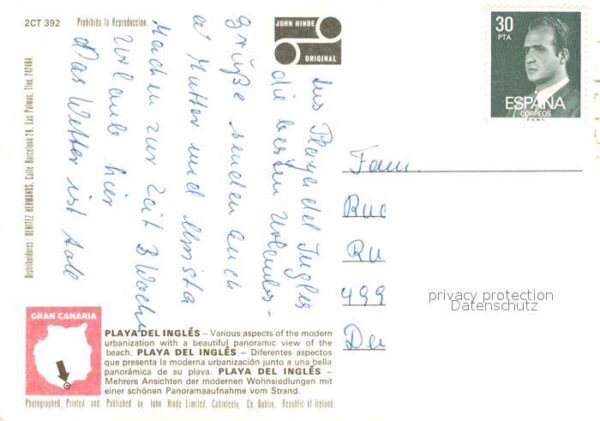 2CT 392
Prohibida la Reproduccion.
JOHN HINDE
ORIGINAL
30
PTA
ESPAÑA
CORREOS
Aus Playa del Ingles
die besten Urlaubs-
grüße senden Euch
Mutter und Christa
Machen zur Zeit 3 Wochen
Urlaub hier
Das Wetter ist toll
Fam.
Rue
Ru
499
Deu
privacy protection
Datenschutz
Distribuidores: BENITEZ HERMANOS, Calle Barcelona 29, Las Palmas. Tfno. 242484.
GRAN CANARIA
PLAYA DEL INGLÉS – Various aspects of the modern
urbanization with a beautiful panoramic view of the
beach. PLAYA DEL INGLÉS – Diferentes aspectos
que presenta la moderna urbanización junto a una bella
panorámica de su playa. PLAYA DEL INGLÉS –
Mehrere Ansichten der modernen Wohnsiedlungen mit
einer schönen Panoramaaufnahme vom Strand.
Photographed, Printed and Published by John Hinde Limited, Cabinteely, Co. Dublin, Republic of Ireland.